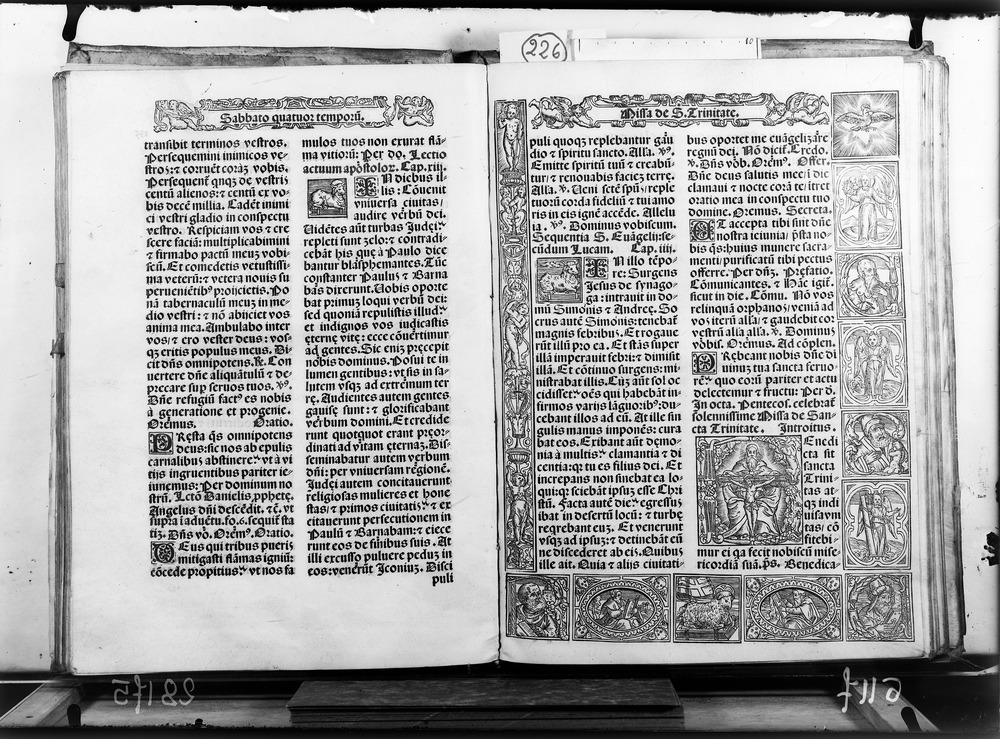 226
10
Sabbato quatuor temporū.
transibit terminos vestros.
Persequemini inimicos ve-
stros: ⁊ corruēt corā vobis.
Persequent̄ qnq̄ de vestris
centū alienos: ⁊ centū ex vo-
bis decē millia. Cadēt inimi
ci vestri gladio in conspectu
vestro. Respiciam vos ⁊ cre
scere faciā: multiplicabimini
⁊ firmabo pactū meuȝ vobis-
scū. Et comedetis vetustissi-
ma veterū: ⁊ vetera nouis su
peruenientibꝰ proijcietis. Po
nā tabernaculū meuȝ in me-
dio vestri: ⁊ nō abijciet vos
anima mea. Ambulabo inter
vos/ ⁊ ero vester deus: vos-
qȝ eritis populus meus. Di-
cit dn̄s omnipotens. ℣. Con
uertere dn̄e aliquātulū ⁊ de-
precare sup seruos tuos. ℣.
Dn̄e refugiū factꝰ es nobis
à generatione et progenie.
Orēmus. Oratio.
PResta qs̄ omnipotens
deus: sic nos ab epulis
carnalibus abstinere: vt à vi
tijs ingruentibus pariter ie-
iunemus: Per dominum no
strū. Lctō Danielis .pphetę.
Angelus dn̄i descēdit. ⁊c̄. vt
supra i aduētu. fo. 6. sequit̄ sta
tiȝ. Dn̄s vō. Orēmꝰ. Oratio.
DEus qui tribus pueris
mitigasti flāmas igniū:
cōcede propitius: vt nos fa
mulos tuos non exurat flā-
ma vitiorū: Per dō. Lectio
actuum apōstoloȝ. Cap. xiij.
IN diebus il
lis: Cōuenit
vniuersa ciuitas/
audire verbū dei.
Uidētes aūt turbas Judęi
repleti sunt zelo: ⁊ contradi-
cebāt his quę à Paulo dice
bantur blasphemantes. Tūc
constanter Paulus ⁊ Barna
bas dixerunt. Uobis oporte
bat primuȝ loqui verbū dei:
sed quoniā repulistis illud:
et indignos vos iudicastis
ęternę vitę: ecce cōuertimur
ad gentes. Sic eniȝ pręcepit
nobis dominus. Posui te in
lumen gentibus: vt sis in sa-
lutem vsqȝ ad extremum ter
rę. Audientes autem gentes
gauisę sunt: ⁊ glorificabant
verbum domini. Et credide
runt quotquot erant pręor-
dinati ad vitam ęternaȝ. Dis-
seminabatur autem verbum
dn̄i: per vniuersam regionē.
Judęi autem concitauerunt
religiosas mulieres et hone
stas/ ⁊ primos ciuitatis: ⁊ ex
citauerunt persecutionem in
Paulū ⁊ Barnabam: ⁊ eiece
runt eos de finibus suis. At
illi excusso puluere peduȝ in
eos: venerūt Iconiuȝ. Disci
puli
Missa de S. Trinitate.
puli quoqȝ replebantur gāu
dio ⁊ spiritu sancto. Alla. ℣.
Emitte spiritū tuū ⁊ creabū-
tur/ ⁊ renouabis facieȝ terrę.
Alla. ℣. Ueni sctē spūs/ reple
tuorū corda fidelíū ⁊ tui amo
ris in eis ignē accēde. Allelu
ia. ℣. Dominus vobiscum.
Sequentia S. Euāgelij: se-
cūdum Lucam. Cap. iiij.
IN illo tēpo-
re: Surgens
Jesus de synago-
ga: intrauit in do-
mū Simonis ⁊ Andreę. So
crus autē Simonis: tenebat̄
magnis febribus. Et rogaue
rūt illū pro ea. Et stās super
illā imperauit febri: ⁊ dimisit
illam. Et cōtinuo surgens: mi-
nistrabat illis. Cūȝ aūt sol oc
cidisset: oēs qui habebāt in-
firmos varijs lāguoribꝰ: du-
cebant illos ad eū. At ille sin
gulis manus imponēs: cura
bat eos. Exibant aūt dęmo-
nia à multis: clamantia ⁊ di
centia: qꝛ tu es filius dei. Et
increpans non sinebat ea lo-
qui: qꝛ sciebāt ipsuȝ esse Chri
stū. Facta autē die: egressus
ibat in desertū locū: ⁊ turbę
reqrebant euȝ. Et venerunt
vsqȝ ad ipsuȝ: ⁊ detinebāt eū
ne discederet ab eis. Quibus
ille ait. Quia ⁊ alijs ciuitati-
bus oportet me euāgelizare
regnū dei. Nō dicit̄. Credo.
℣. Dn̄s vōb. Orēmꝰ. Offer.
Dn̄e deus salutis meę/ in die
clamaui ⁊ nocte corā te/ itret
oratio mea in conspectu tuo
domine. Oremus. Secreta.
UT accepta tibi sint dn̄e
nostra ieiunia: pr̄sta no-
bis qs̄: huius munere sacra-
menti/ purificatū tibi pectus
offerre. Per dn̄ȝ. Pręfatio.
Cōmunicantes. ⁊ Hāc igit̄.
ficut in die. Cōmu. Nō vos
relinquā orphanos/ veniā ad
vos iterū alla/ ⁊ gaudebit cor
vestrū alla alla. ℣. Dominus
vobis. Orēmus. Ad cōplen.
PRębeant nobis dn̄e di
uinuȝ tua sancta feruo-
rē: quo eorū pariter et actu
delectemur ⁊ fructu: Per dō.
In octa. Pentecos. celebrat̄
solennissime Missa de San-
cta Trinitate. Introitus.
BEnedi
cta sit
sancta
Trini-
tas at-
qȝ indi
uisa vni
tas/ cō
fitebi-
mur ei qa fecit nobiscū mise
ricordiā suā. ps̄. Benedica-
28175
6117